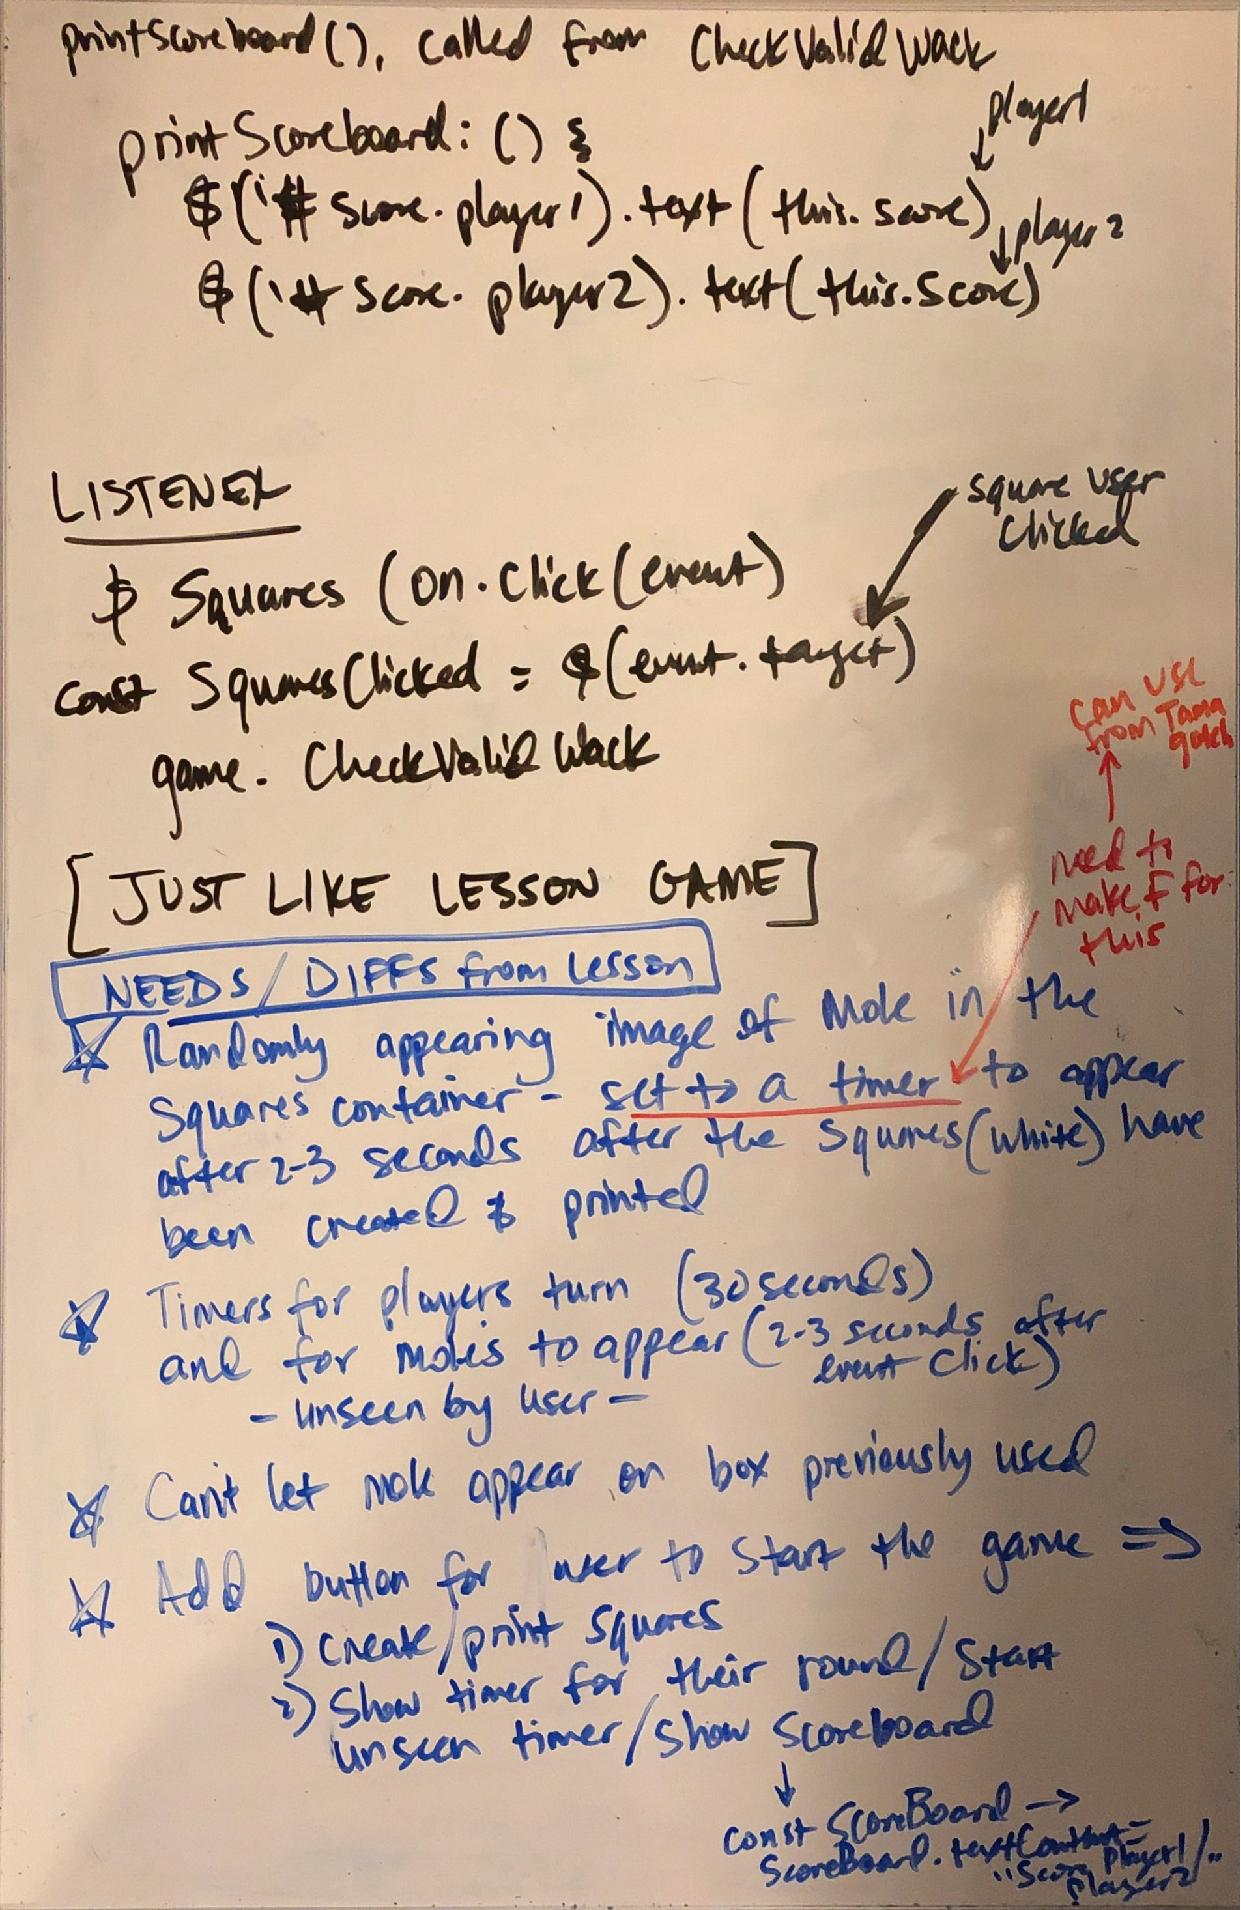 printScoreboard(), called from CheckValidWack
↓ player1
printScoreboard: () {
$('# Score. player1). text (this. score)
↓ player2
$('# Score. player2). text( this.Score)
LISTENER
square user
clicked
$ Squares (on.click(event)
const SquaresClicked = $(event. target)
game. CheckValidWack
can use
from Tama
gotch
[JUST LIKE LESSON GAME]
need to
make F for
this
NEEDS/DIFFS from lesson
☆ Randomly appearing image of Mole in the
Squares container - set to a timer to appear
after 2-3 seconds after the squares (white) have
been created & printed
☆ Timers for players turn (30 seconds)
and for moles to appear (2-3 seconds after
event click)
- unseen by user -
☆ Can't let mole appear on box previously used
☆ Add button for user to start the game =>
1) create/print squares
2) Show timer for their round/start
unseen timer/show scoreboard
↓
const ScoreBoard →
ScoreBoard.textContent=
"Score player1/"
player2